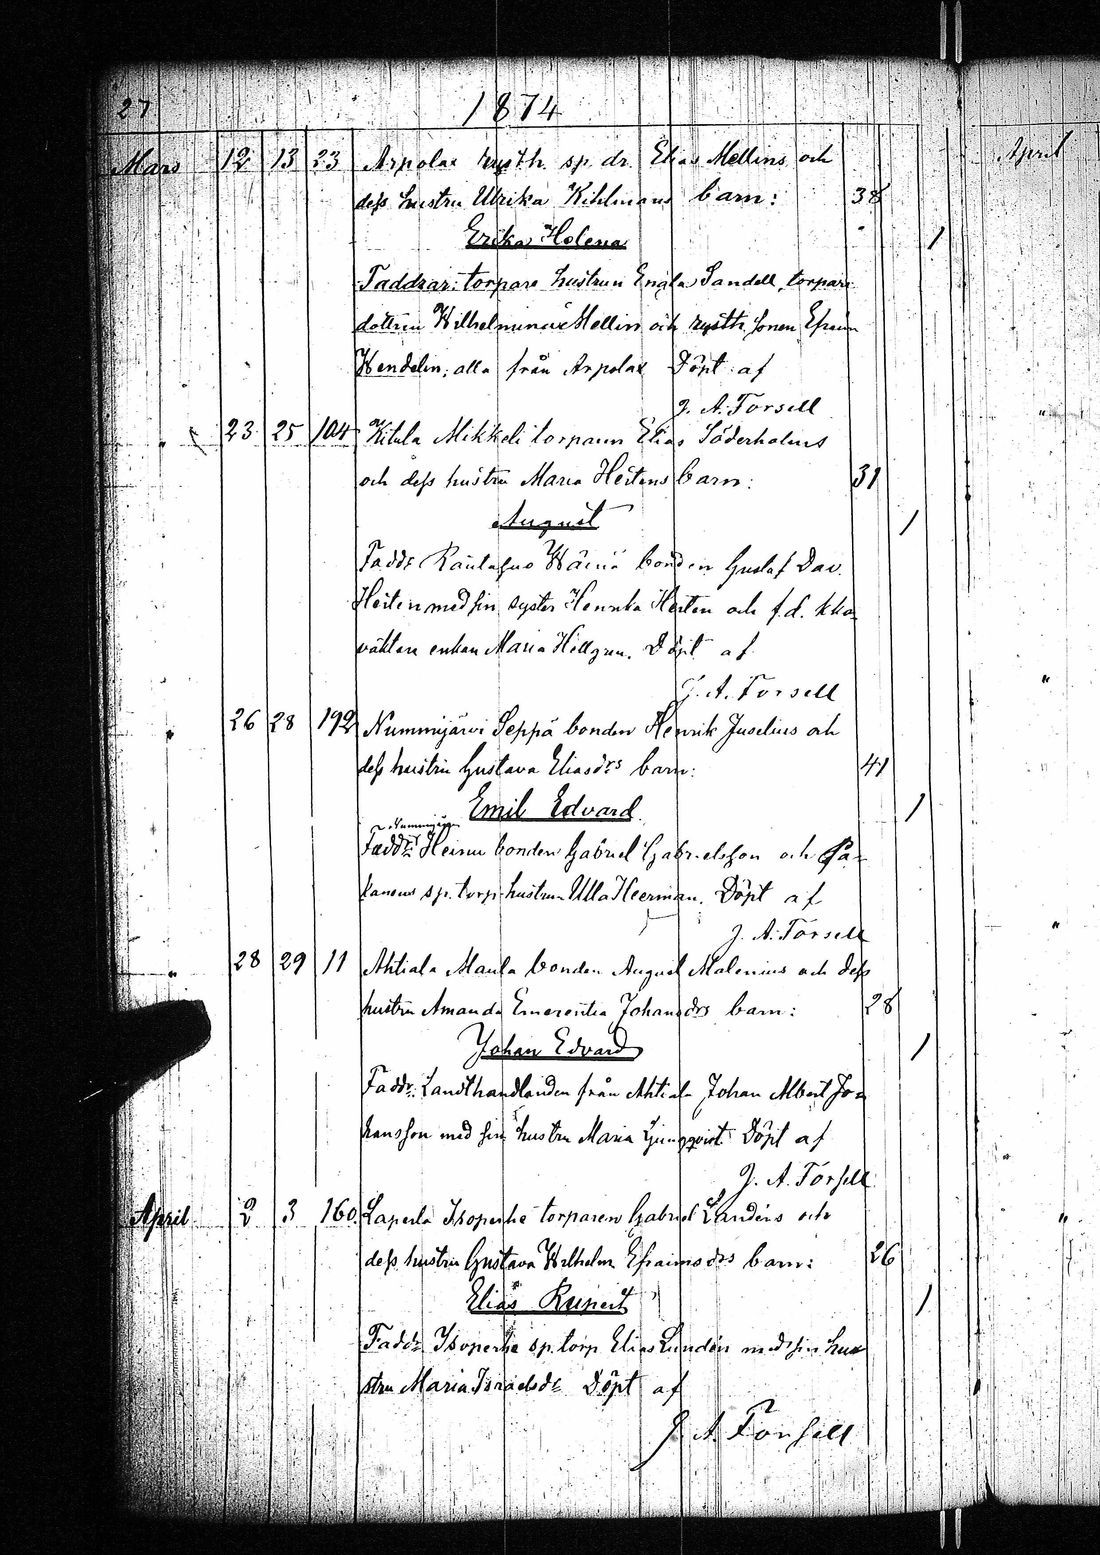 27
1874
Mars 12 13 23 Arpolax rusth. sp. dr. Elias Mellins och
dess hustru Ulrika Kihlmans barn: 38
Erika Helena 1
Faddrar: torpare hustrun Engla Sandell, torpare
dottren Wilhelmina Mellin och rusth. sonen Efraim
Wendelin, alla från Arpolax Döpt af
J. A. Forsell
" 23 25 104 Kitula Mikkeli torparen Elias Söderholms
och dess hustru Maria Heitens barn: 31
August 1
Faddr Wäinä bonden Gustaf Dav.
Heiten med sin syster Henrika Heiten och f.d.
väktare enkan Maria Hellgren. Döpt af
J. A. Forsell
" 26 28 192 Nummijärvi Seppä bonden Henrik Juselius och
dess hustru Gustava Eliasdrs barn: 41
Emil Edvard 1
Nummijärvi
Faddr: Heinu bonden Gabriel Gabrielsson och
sp. torp. hustrun Ulla Heerman. Döpt af
J. A. Forsell
" 28 29 11 Ahtiala Maula bonden August Malenius och dess
hustru Amanda Emerentia Johansdrs barn: 28
Johan Edvard 1
Faddr: Landthandlanden från Ahtiala Johan Albert Jo-
hansson med sin hustru Maria Ljungqvist. Döpt af
J. A. Forsell
April 2 3 160 Laperla Isoperhe torparen Gabriel Landéns och
dess hustru Gustava Wilhelm. Efraimsdrs barn: 26
Elias Rupert 1
Faddr Isoperhe sp. torp Elias Lundén med sin hu-
stru Maria Israelsdr Döpt af
J. A. Forsell
April
"
"
"
"